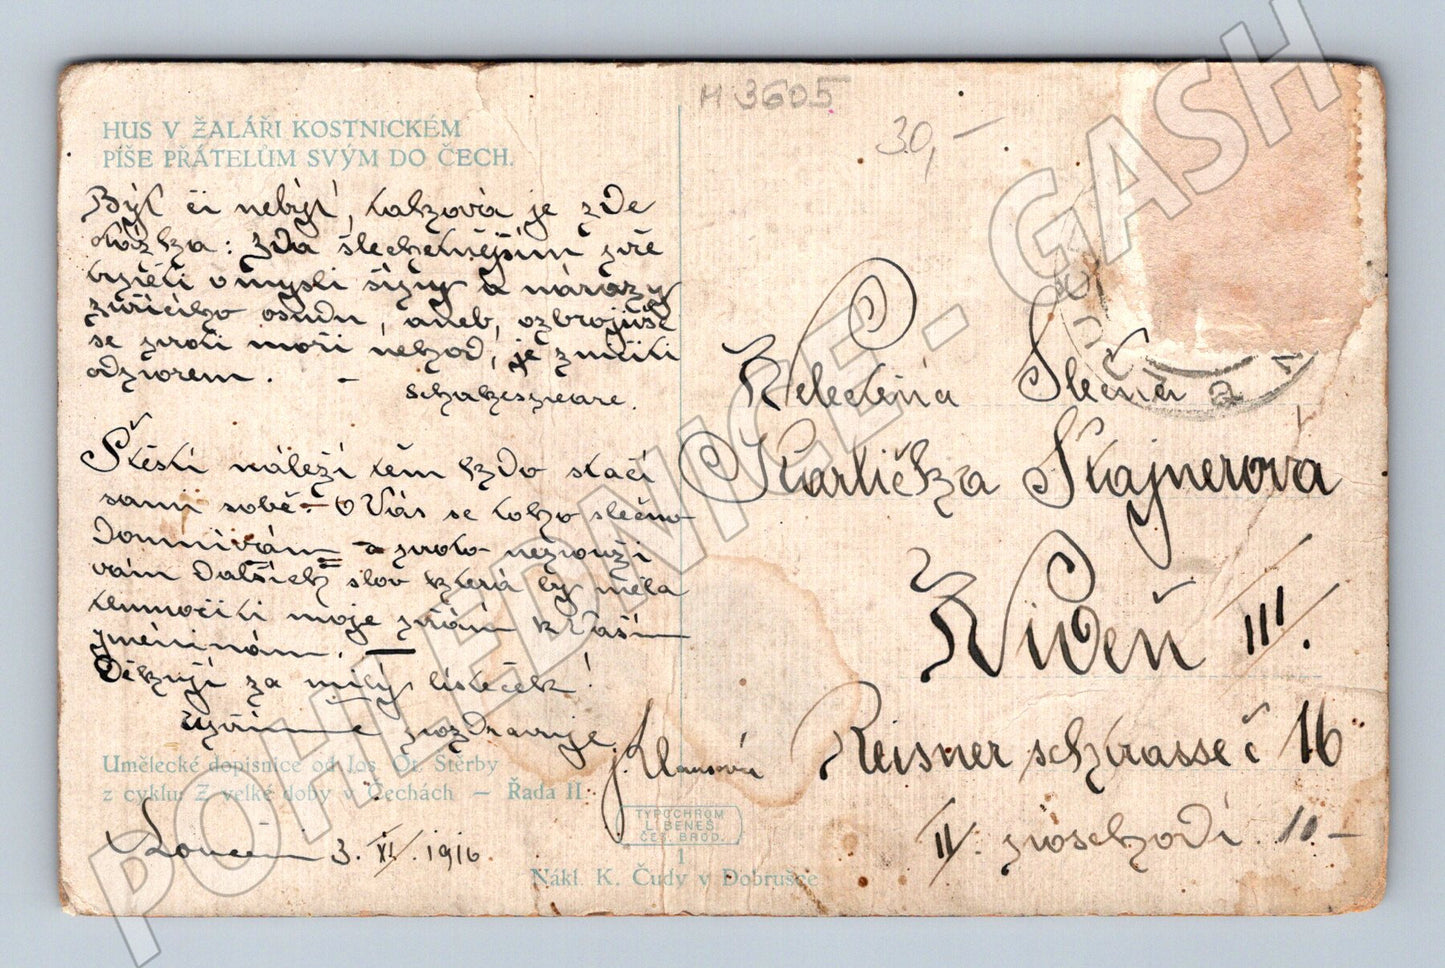 HUS V ŽALÁŘI KOSTNICKÉM
PÍŠE PŘÁTELŮM SVÝM DO ČECH.
M 3605
30,—
Být či nebýt, takzová je zde
otázka: Zda šlechetnějším
v mysli šípy a nárazy
zuřícího osudu, aneb, ozbrojivše
se proti moři nehod, je zničiti
odporem. —
Schakespeare.
Štěstí náleží těm kdo stačí
sami sobě. O Vás se toho slečno
domnívám a proto nepouži
vám dalších slov která by měla
moje přání k Vaším
jméninám. —
Děkuji za milý lísteček!
Upřímně pozdravuje
Umělecké dopisnice od Jos. Ot. Štěrby
z cyklu: Z velké doby v Čechách — Řada II.
3. XI. 1916.
TYPOCHROM
L. BENEŠ.
ČES. BROD.
1
Nákl. K. Čudy v Dobrušce
Velectěná Slečna
Karlička Štajnerova
Vídeň III.
Reisner schtrasse č 16
II. poschodí. 10—
POHLEDNICE - GASH